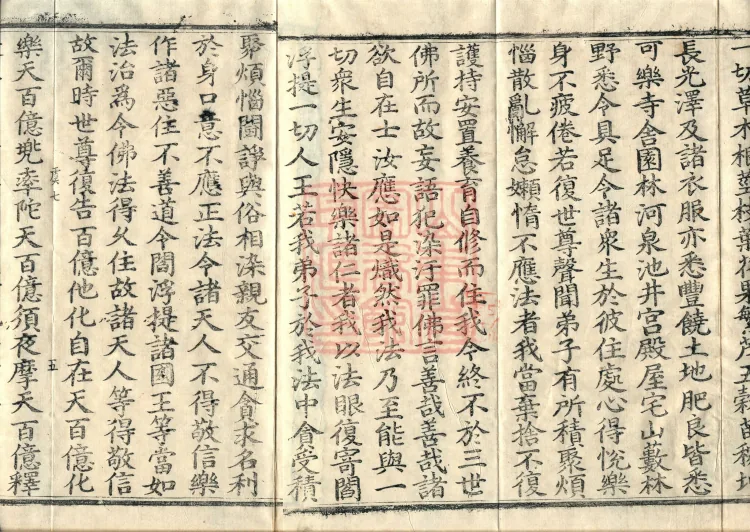 一切草木根莖枝葉花果
長光澤及諸衣服亦悉豐饒土地肥良皆悉
可樂寺舍園林河泉池井宮殿屋宅山藪林
野悉令具足令諸衆生於彼住處心得悅樂
身不疲倦若復世尊聲聞弟子有所積聚煩
惱散亂懈怠嬾惰不應法者我當棄捨不復
護持安置養育自修而住我今終不於三世
佛所而故妄語犯染汙罪佛言善哉善哉諸
欲自在士汝應如是熾然我法乃至能與一
切衆生安隱快樂諸仁者我以法眼復寄閻
浮提一切人王若我弟子於我法中貪受積
聚煩惱鬪諍與俗相染親友交通貪求名利
於身口意不應正法令諸天人不得敬信樂
作諸惡住不善道令閻浮提諸國王等當如
法治爲令佛法得久住故諸天人等得敬信
故爾時世尊復告百億他化自在天百億化
七
五
樂天百億兠率陀天百億須夜摩天百億釋